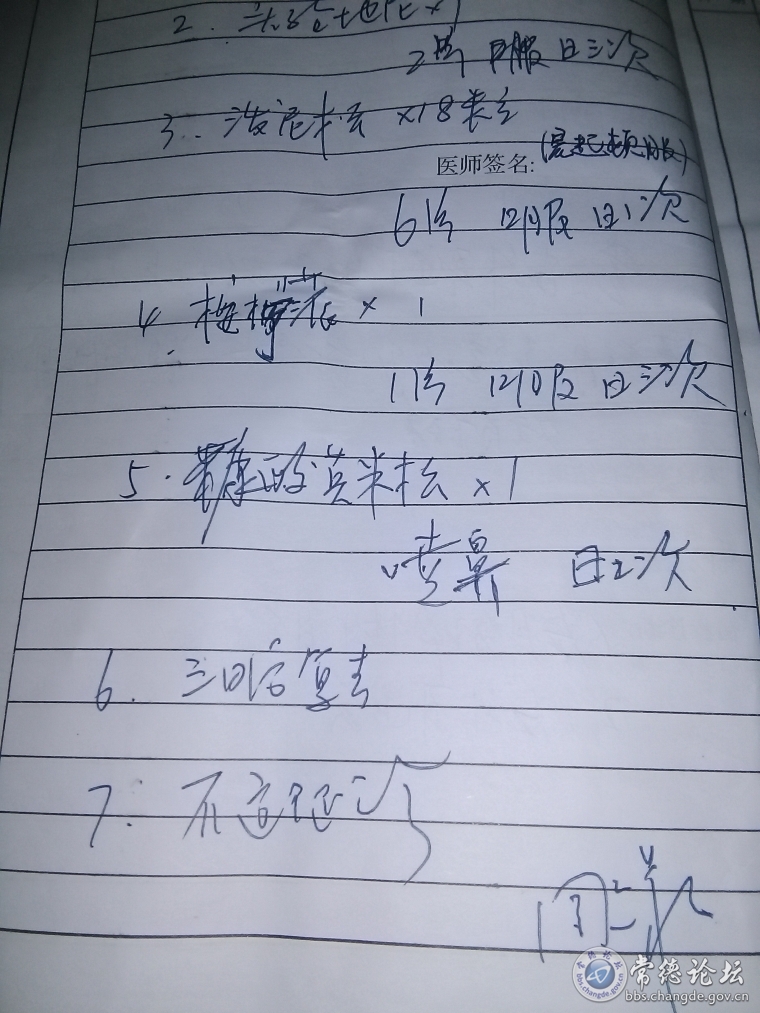 2. 头孢地尼×1
2片 口服 日三次
3. 泼尼松 ×18
医师签名:
(晨起顿服)
6片 口服 日1次
4. ×1
1片 口服 日三次
5. 糠酸莫米松 ×1
喷鼻 日2次
6. 三日后复查
7. 不适随诊
常德论坛
bbs.changde.gov.cn